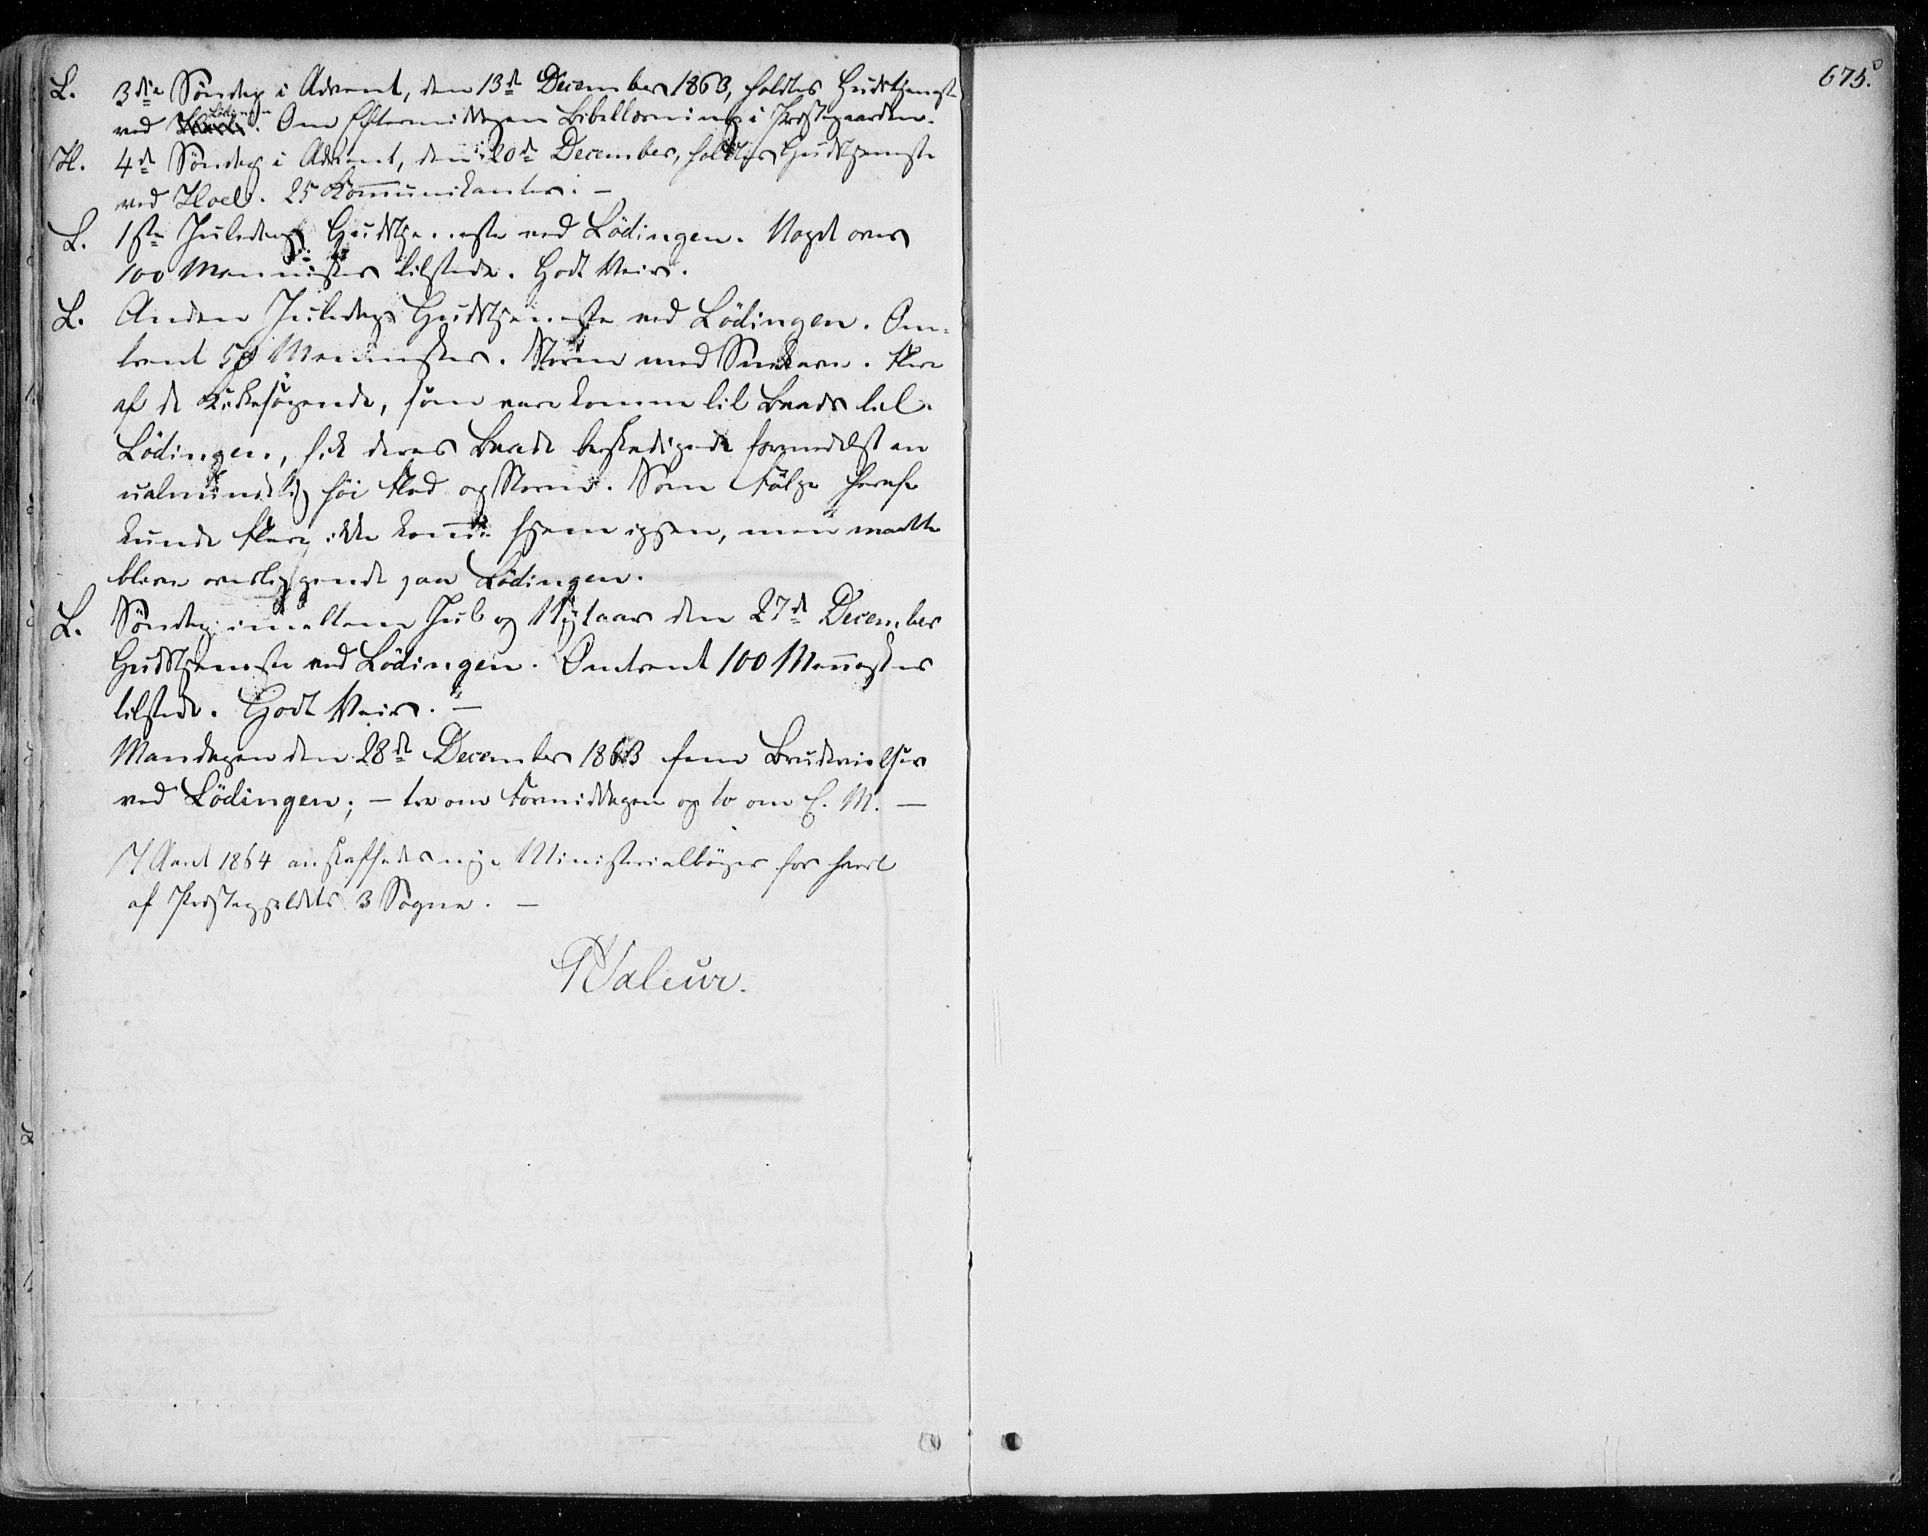 L. 3die Söndag i Advent, den 13de December 1863, holdtes Gudstjeneste
ved Lödingen. Om Eftermiddagen Bibellæsning i Præstegaarden.
H. 4de Söndag i Advent, den 20de December, holdtes Gudstjeneste
ved Hoel. 25 Kommunikanter. –
L. 1ste Juledag Gudstjeneste ved Lödingen. Noget over
100 Mennisker tilstede. Godt Veir.
L. Anden Juledag Gudstjeneste ved Lödingen. Om-
trent 50 Mennesker. Storm med Snee. Flere
af de Kirkesögende, som vare komne til Baads til
Lödingen, fik deres Baade beskadigede formedelst en
ualmindelig höi Flod og Storm. Som Fölge heraf
kunde flere ikke komme hjem igjen, men maatte
blive overliggende paa Lödingen.
L. Söndag imellem Jul og Nytaar den 27de December
Gudstjeneste ved Lödingen. Omtrent 100 Mennesker
tilstede. Godt Veir. –
Mandagen den 28de December 1863 fem Brudevielser
ved Lödingen; – tre om Formiddagen og to om E. M. –
I Aaret 1864 anskaffedes nye Ministerialböger for hvert
af Præstegjeldets 3 Sogne. –
Valeur.
675.